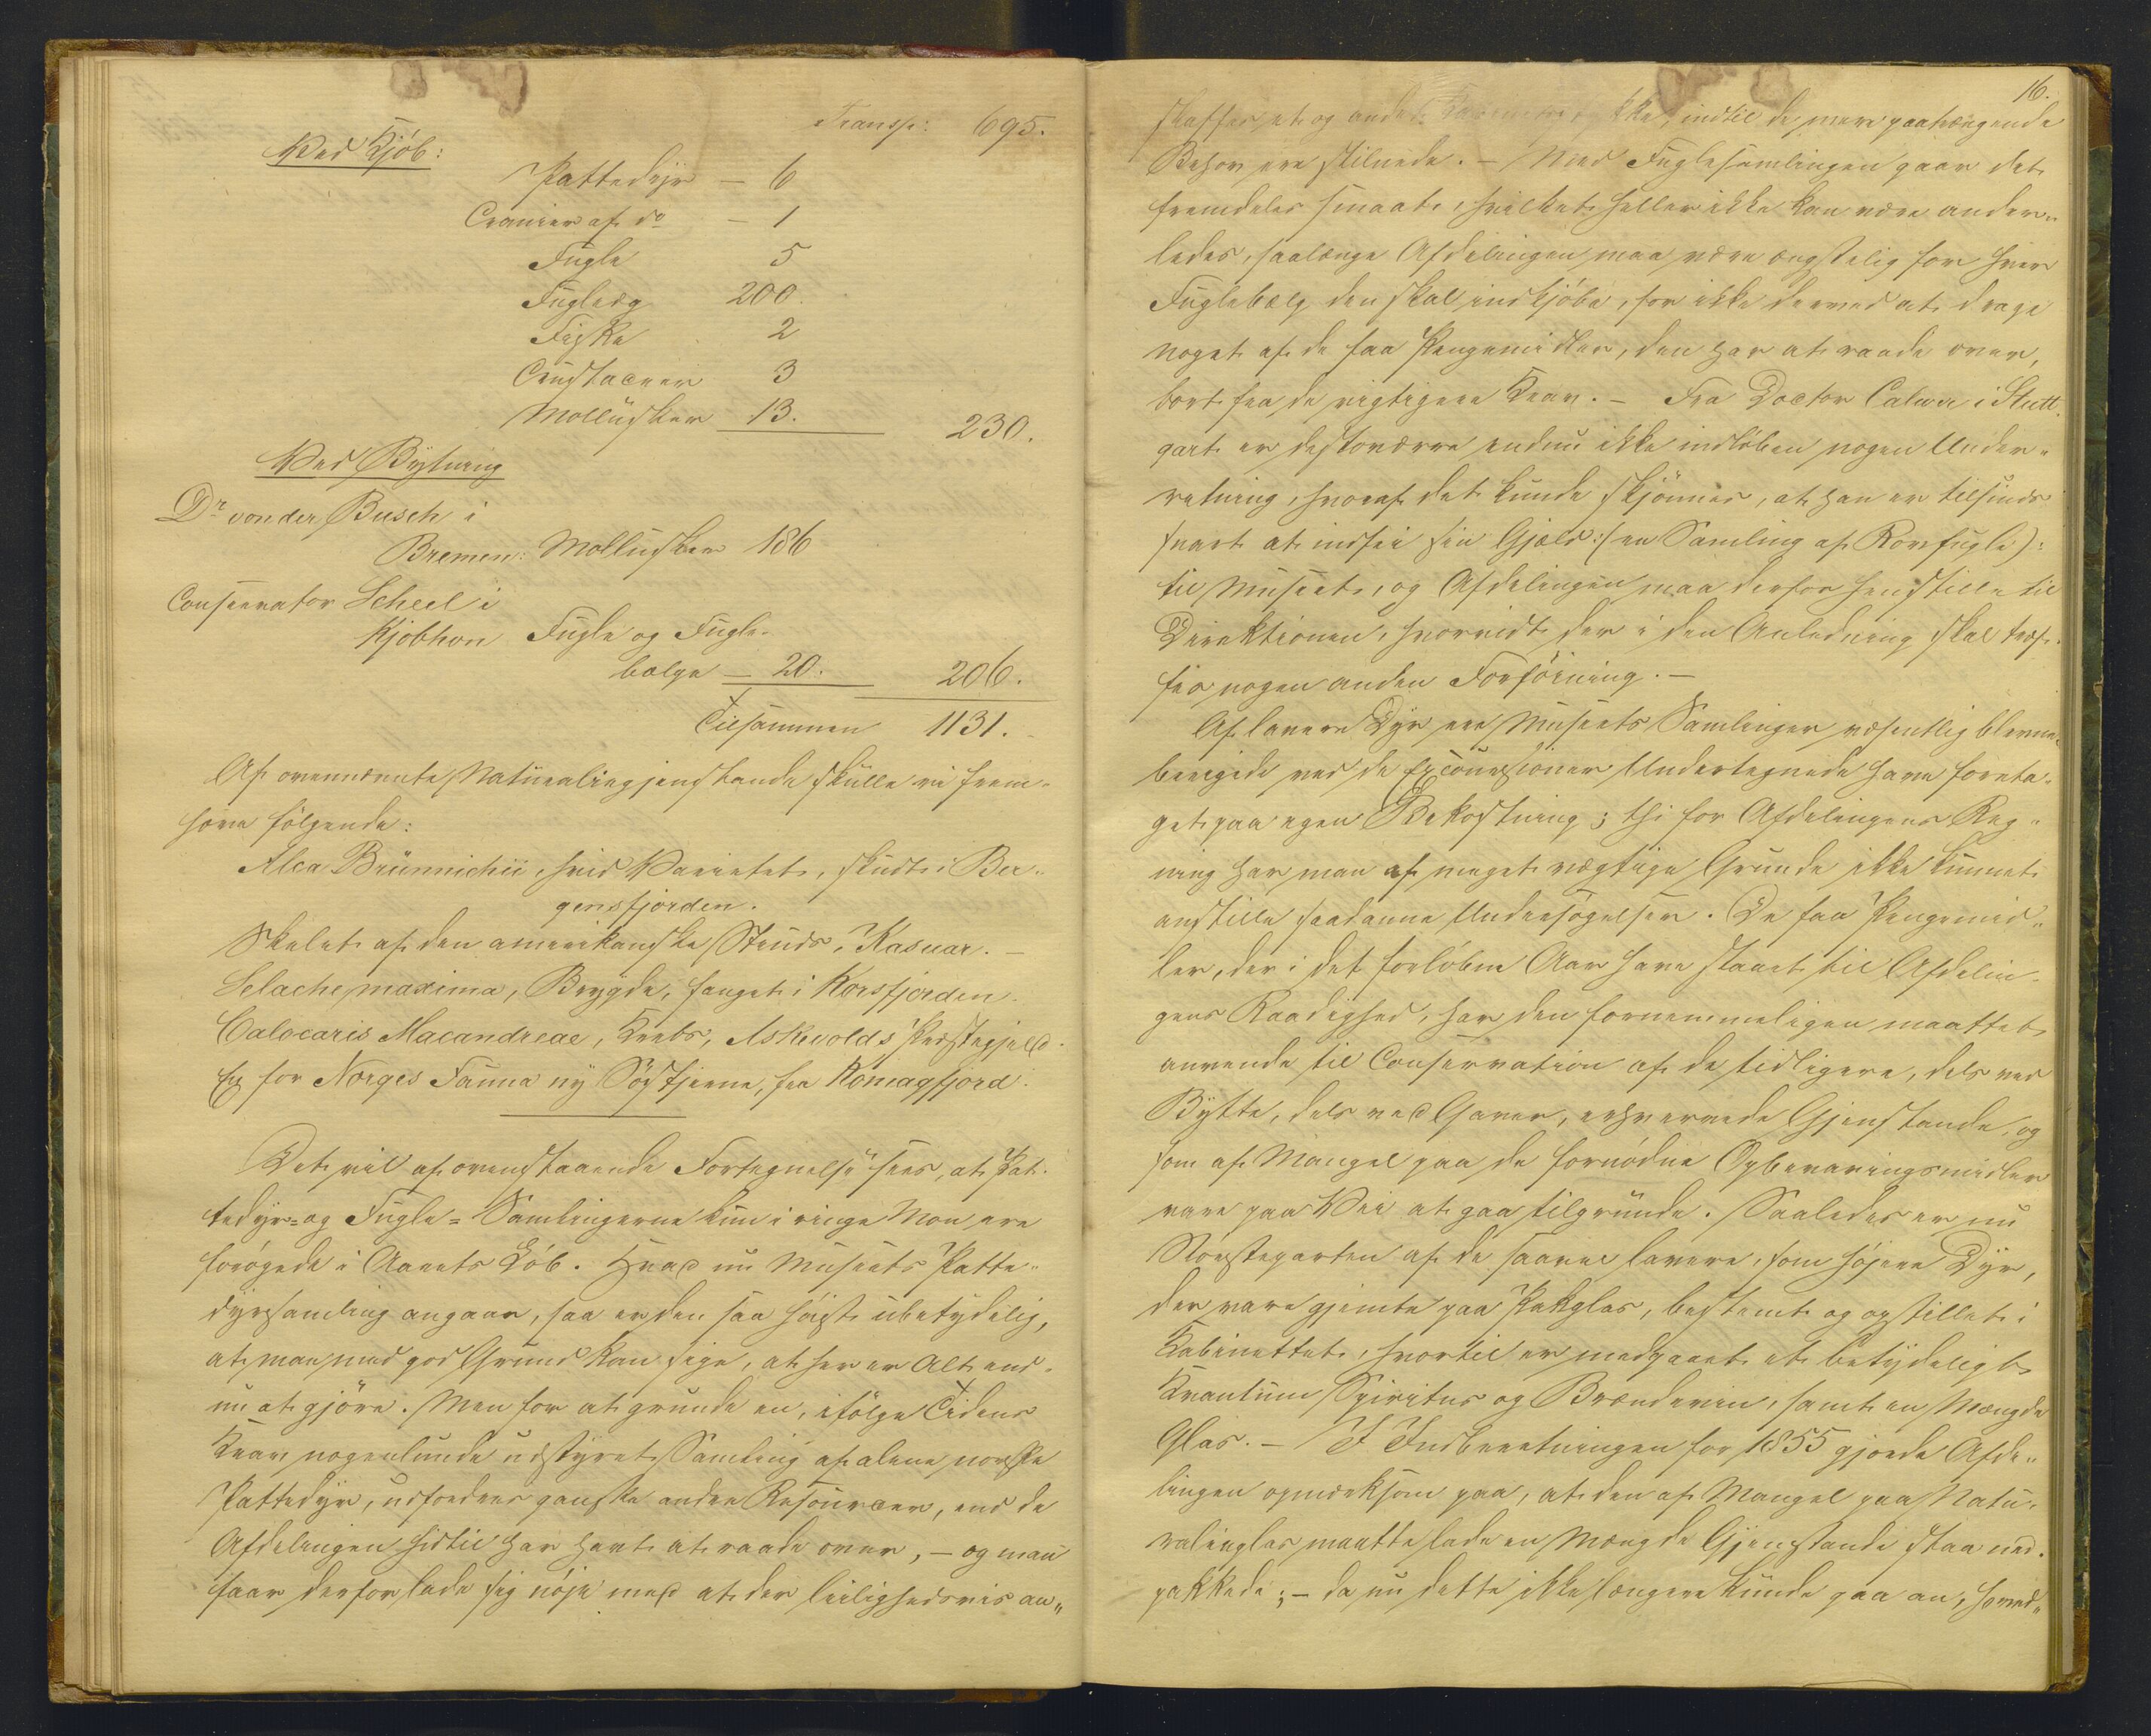 Transp: 695.
Ved Kjöb:
Pattedyr — 6
Cranier af do — 1
Fugle 5
Fugleæg 200.
Fiske 2
Crustaceer 3
Mollusker 13.
230.
Ved Bytning
Dr von der Busch i
Bremen: Mollusker 186
Conservator Scheel i
Kjöbhvn Fugle og Fugle-
bælge — 20.
206.
Tilsammen 1131.
Af ovennævnte Naturaliegjenstande skulle vi frem-
hæve fölgende:
Alca Brünnichii, hvid Varietet, skudt i Ber-
gensfjorden.
Skelet af den amerikanske Struds, Kasuar. —
Selache maxima, Brygde, fanget i Korsfjorden.
Calocaris Macandreae, Krebs, Askevolds Præstegjeld.
En for Norges Fauna ny Söstjerne, fra Komagfjord.
Det vil af ovenstaaende Fortegnelse sees, at Pat-
tedyr- og Fugle-Samlingerne kun i ringe Mon ere
forögede i Aarets Löb. Hvad nu Museets Patte-
dyrsamling angaar, saa er den saa höist ubetydelig,
at man med god Grund kan sige, at her er Alt end-
nu at gjöre. Men for at grunde en, ifölge Tidens
Krav nogenlunde udstyret Samling af alene norske
Pattedyr, udfordres ganske andre Resourcer, end de
Afdelingen hidtil har havt at raade over, — og man
faar derfor lade sig nöje med at der leilighedsvis an-
16.
skaffes et og andet indtil de mere paatrængende
Behov ere stillede. — Med Fuglesamlingen gaar det
fremdeles smaat, hvilket heller ikke kan være ander-
ledes, saalænge Afdelingen maa være ængstelig for hver
Fuglebælg den skal indkjöbe, for ikke derved at drage
noget af de faa Pengemidler, den har at raade over,
bort fra de vigtigere Krav. — Fra Doctor Calwer i Stutt-
gart er desværre endnu ikke indlöben nogen Under-
retning, hvoraf det kunde skjönnes, at han er tilsinds
snart at indfri sin Gjæld :(en Samling af Rovfugle):
til Museet, og Afdelingen maa derfor henstille til
Direktionen, hvorvidt der i den Anledning skal træf-
fes nogen anden Forföining. —
Af lavere Dyr ere Museets Samlinger væsentlig blevne
berigede ved de Excursioner Undertegnede have foreta-
get paa egen Bekostning; thi for Afdelingens Reg-
ning har man af meget vægtige Grunde ikke kunnet
anstille saadanne Undersögelser. De faa Pengemid-
ler, der i det forlöbne Aar have staaet til Afdelin-
gens Raadighed, har den fornemmeligen maattet
anvende til Conservation af de tidligere, dels ved
Bytte, dels ved Gaver, erhvervede Gjenstande, og
som af Mangel paa de fornödne Opbevaringsmidler
vare paa Vei at gaa tilgrunde. Saaledes er nu
Störsteparten af de saavel lavere, som höjere Dyr,
der vare gjemte paa Pakglas, bestemt og opstillet i
Kabinettet, hvortil er medgaaet et betydeligt
Kvantum Spiritus og Brændevin, samt en Mængde
Glas. — I Indberetningen for 1855 gjorde Afde-
lingen opmærksom paa, at den af Mangel paa Natu-
ralieglas maatte lade en Mængde Gjenstande staa ned-
pakkede; — da nu dette ikke længere kunde gaa an, hvad